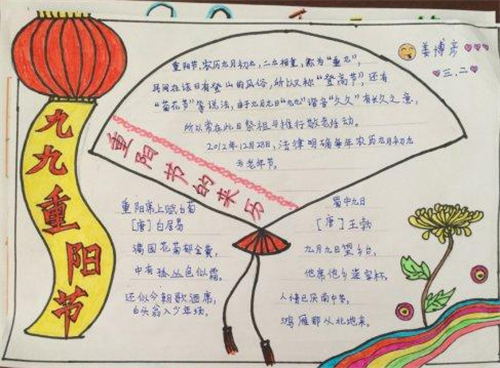 九九重阳节
姜博彦
三.二
重阳节,农历九月初九,二九相重,称为"重九",
民间在该日有登山的风俗,所以称"登高节",还有
"菊花节"等说法,由于九月九日"九九"谐音"久久"有长久之意,
所以常在此日祭祖与推行敬老活动。
2012年12月28日,法律明确每年农历九月初九
为老年节。
重阳节的来历
重阳席上赋白菊
[唐]白居易
满园花菊郁金黄,
中有孤丛色似霜。
还似今朝歌酒席,
白头翁入少年场。
蜀中九日
[唐]王勃
九月九日望乡台,
他席他乡送客杯。
人情已厌南中苦,
鸿雁那从北地来。